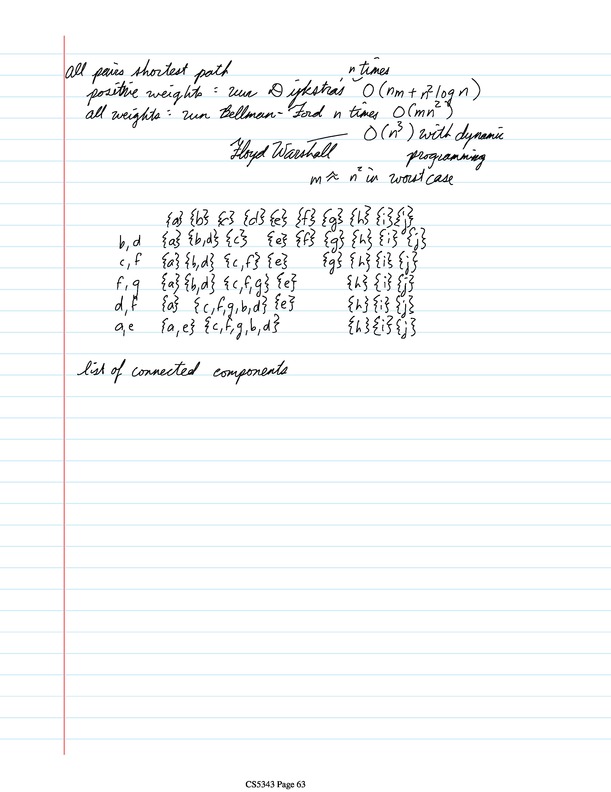 all pairs shortest path n times
positive weights : run Dijkstras O(nm + n² log n)
all weights : run Bellman-Ford n times O(mn²)
Floyd Warshall — O(n³) with dynamic programming
m ≈ n² in worst case
{a} {b} {c} {d} {e} {f} {g} {h} {i} {j}
b,d {a} {b,d} {c} {e} {f} {g} {h} {i} {j}
c,f {a} {b,d} {c,f} {e} {g} {h} {i} {j}
f,g {a} {b,d} {c,f,g} {e} {h} {i} {j}
d,f {a} {c,f,g,b,d} {e} {h} {i} {j}
a,e {a,e} {c,f,g,b,d} {h} {i} {j}
list of connected components
CS5343 Page 63